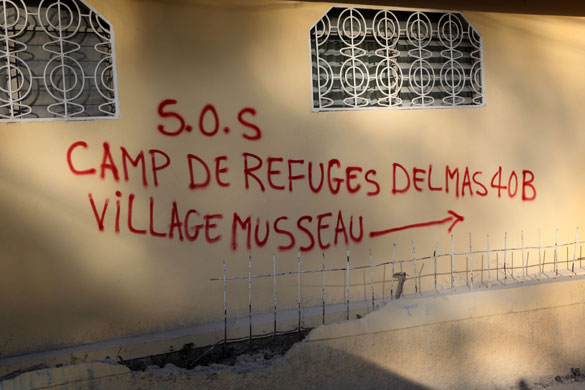 S.O.S
CAMP DE REFUGES DELMAS 40B
ViLLAGE MUSSEAU